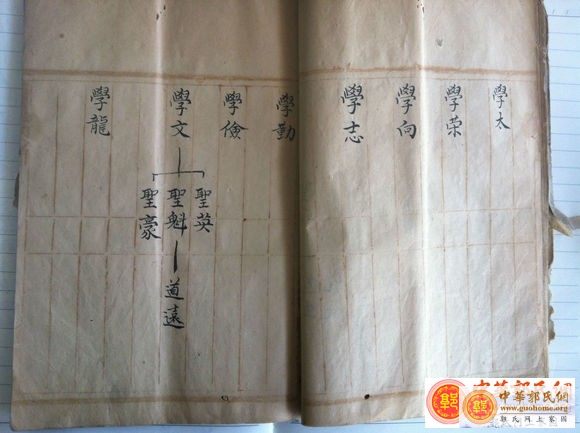 學太
學荣
學向
學志
學勤
學儉
學文
學龍
聖英
聖魁
聖豪
道遠
中華郭氏網
www.guohome.org
郭氏網上家園